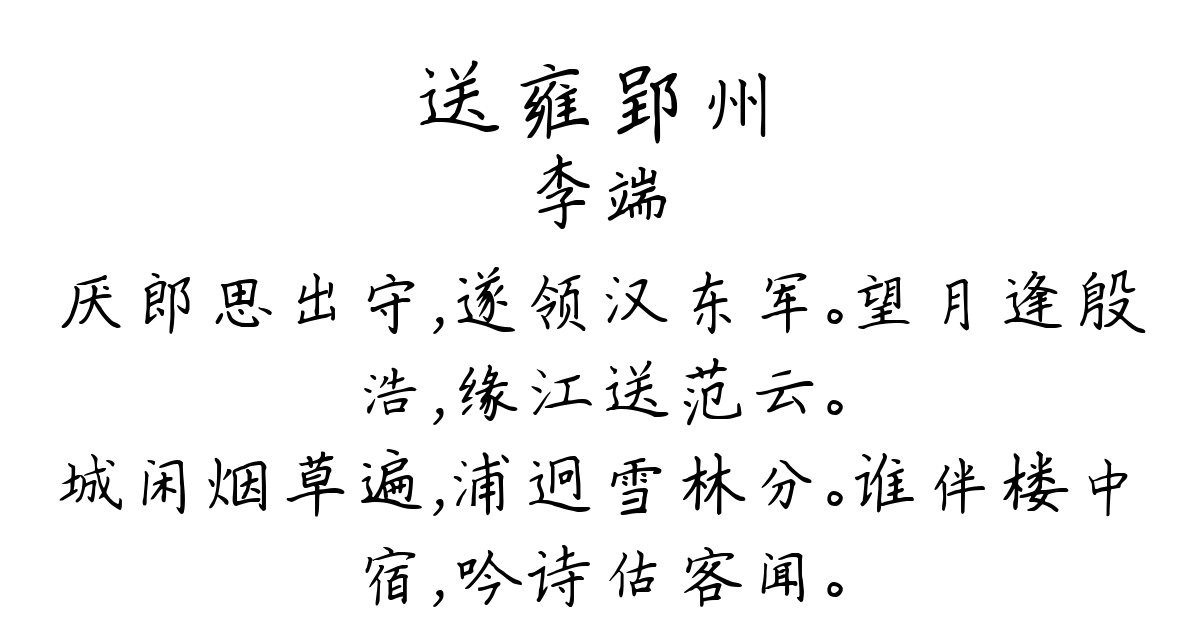 送雍郢州
李端
厌郎思出守,遂领汉东军。望月逢殷
浩,缘江送范云。
城闲烟草遍,浦迥雪林分。谁伴楼中
宿,吟诗估客闻。